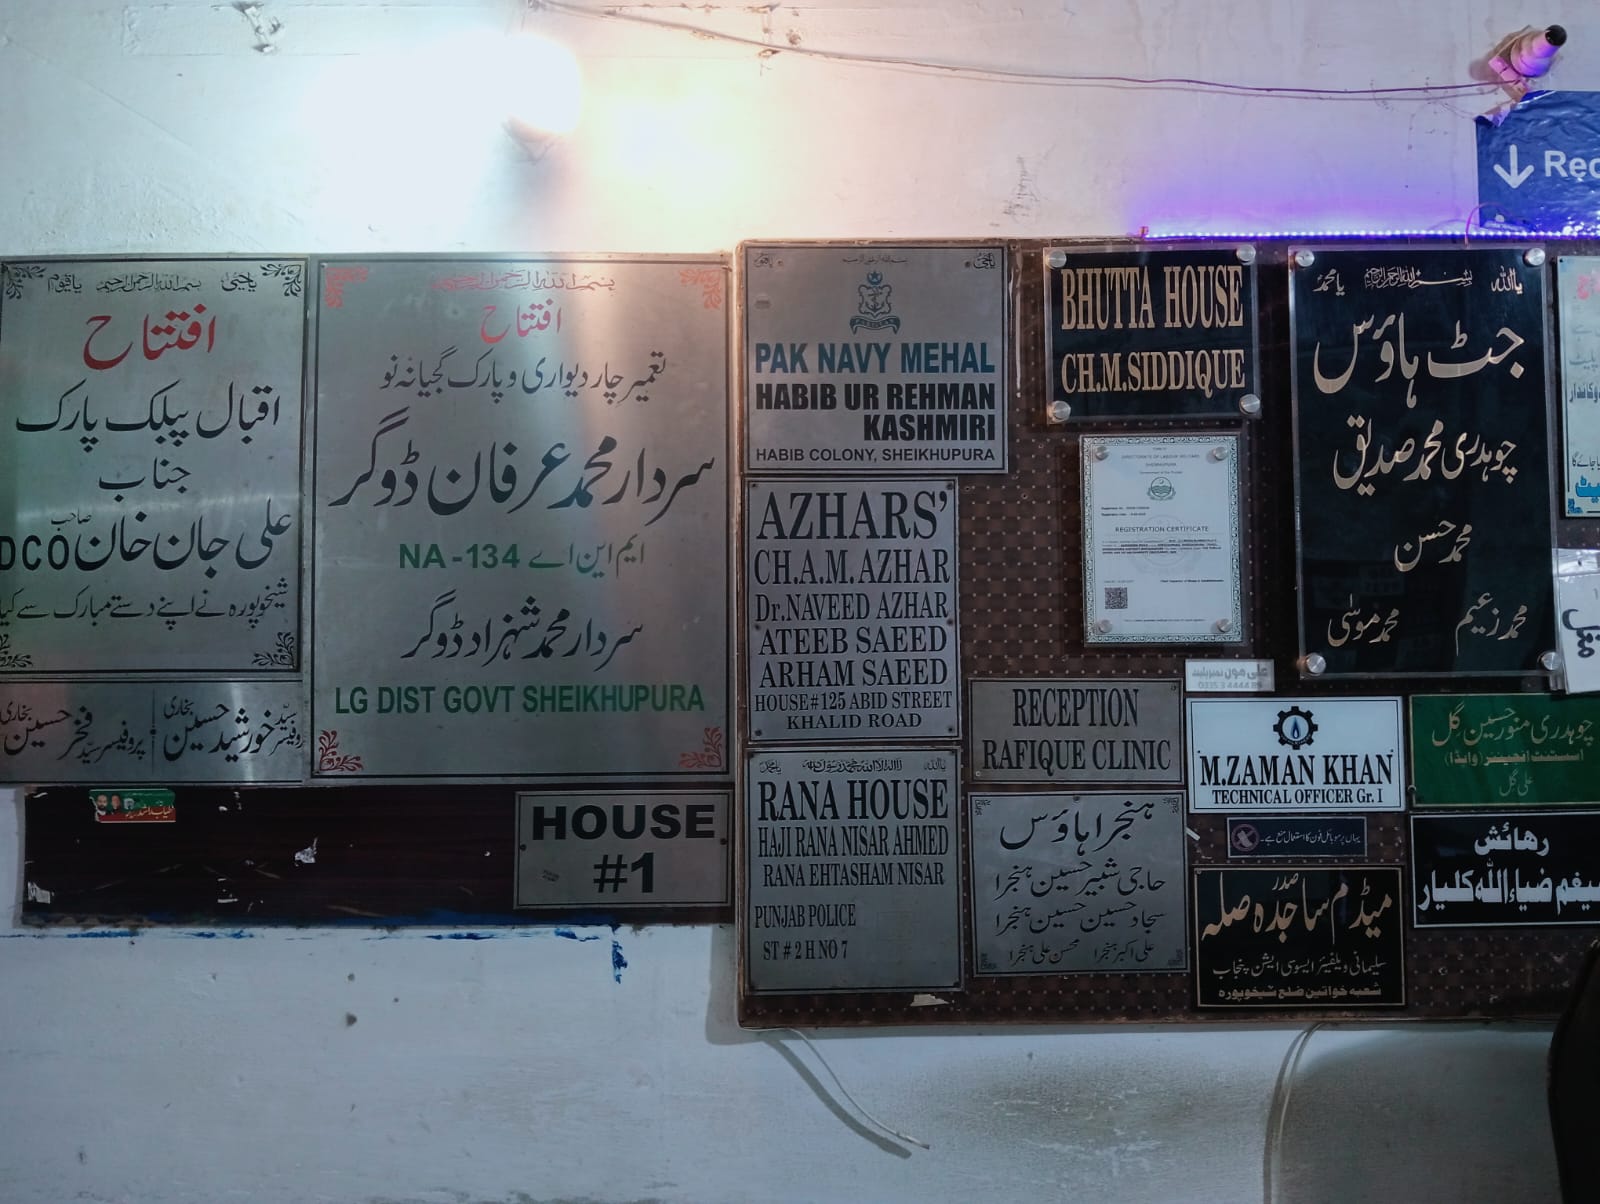 یاحیّ بسم اللہ الرحمن الرحیم یاقیوم
افتتاح
اقبال پبلک پارک
جناب
علی جان خان صاحب DCO
شیخوپورہ نے اپنے دستے مبارک سے کیا
پروفیسر سید خورشید حسین بخاری
پروفیسر سید فخر حسین بخاری
بسم اللہ الرحمن الرحیم
افتتاح
تعمیر چار دیواری و پارک گجیانہ نو
سردار محمد عرفان ڈوگر
ایم این اے NA - 134
سردار محمد شہزاد ڈوگر
LG DIST GOVT SHEIKHUPURA
HOUSE
#1
PAK NAVY MEHAL
HABIB UR REHMAN
KASHMIRI
HABIB COLONY, SHEIKHUPURA
AZHARS'
CH.A.M. AZHAR
Dr.NAVEED AZHAR
ATEEB SAEED
ARHAM SAEED
HOUSE#125 ABID STREET
KHALID ROAD
یااللہ لا الہ الا اللہ محمد رسول اللہ یامحمد
RANA HOUSE
HAJI RANA NISAR AHMED
RANA EHTASHAM NISAR
PUNJAB POLICE
ST # 2 H NO 7
BHUTTA HOUSE
CH.M.SIDDIQUE
DIRECTORATE OF LABOUR WELFARE
SHEIKHUPURA
REGISTRATION CERTIFICATE
RECEPTION
RAFIQUE CLINIC
ہنجرا ہاؤس
حاجی شبیر حسین ہنجرا
سجاد حسین حسین ہنجرا
علی اکبر ہنجرا محسن علی ہنجرا
یااللہ بسم اللہ الرحمن الرحیم یامحمد
جٹ ہاؤس
چوہدری محمد صدیق
محمد حسن
محمد زعیم محمد موسیٰ
علی مون نمبر پلیٹ
M.ZAMAN KHAN
TECHNICAL OFFICER Gr. I
یہاں پر موبائل فون کا استعمال منع ہے۔
صدر
میڈم ساجدہ صلہ
سلیمانی ویلفیئر ایسوسی ایشن پنجاب
شعبہ خواتین ضلع شیخوپورہ
چوہدری منور حسین گل
اسسٹنٹ انجینئر (واپڈا)
علی گل
رھائش
ضیاءاللہ کلیار
Rec